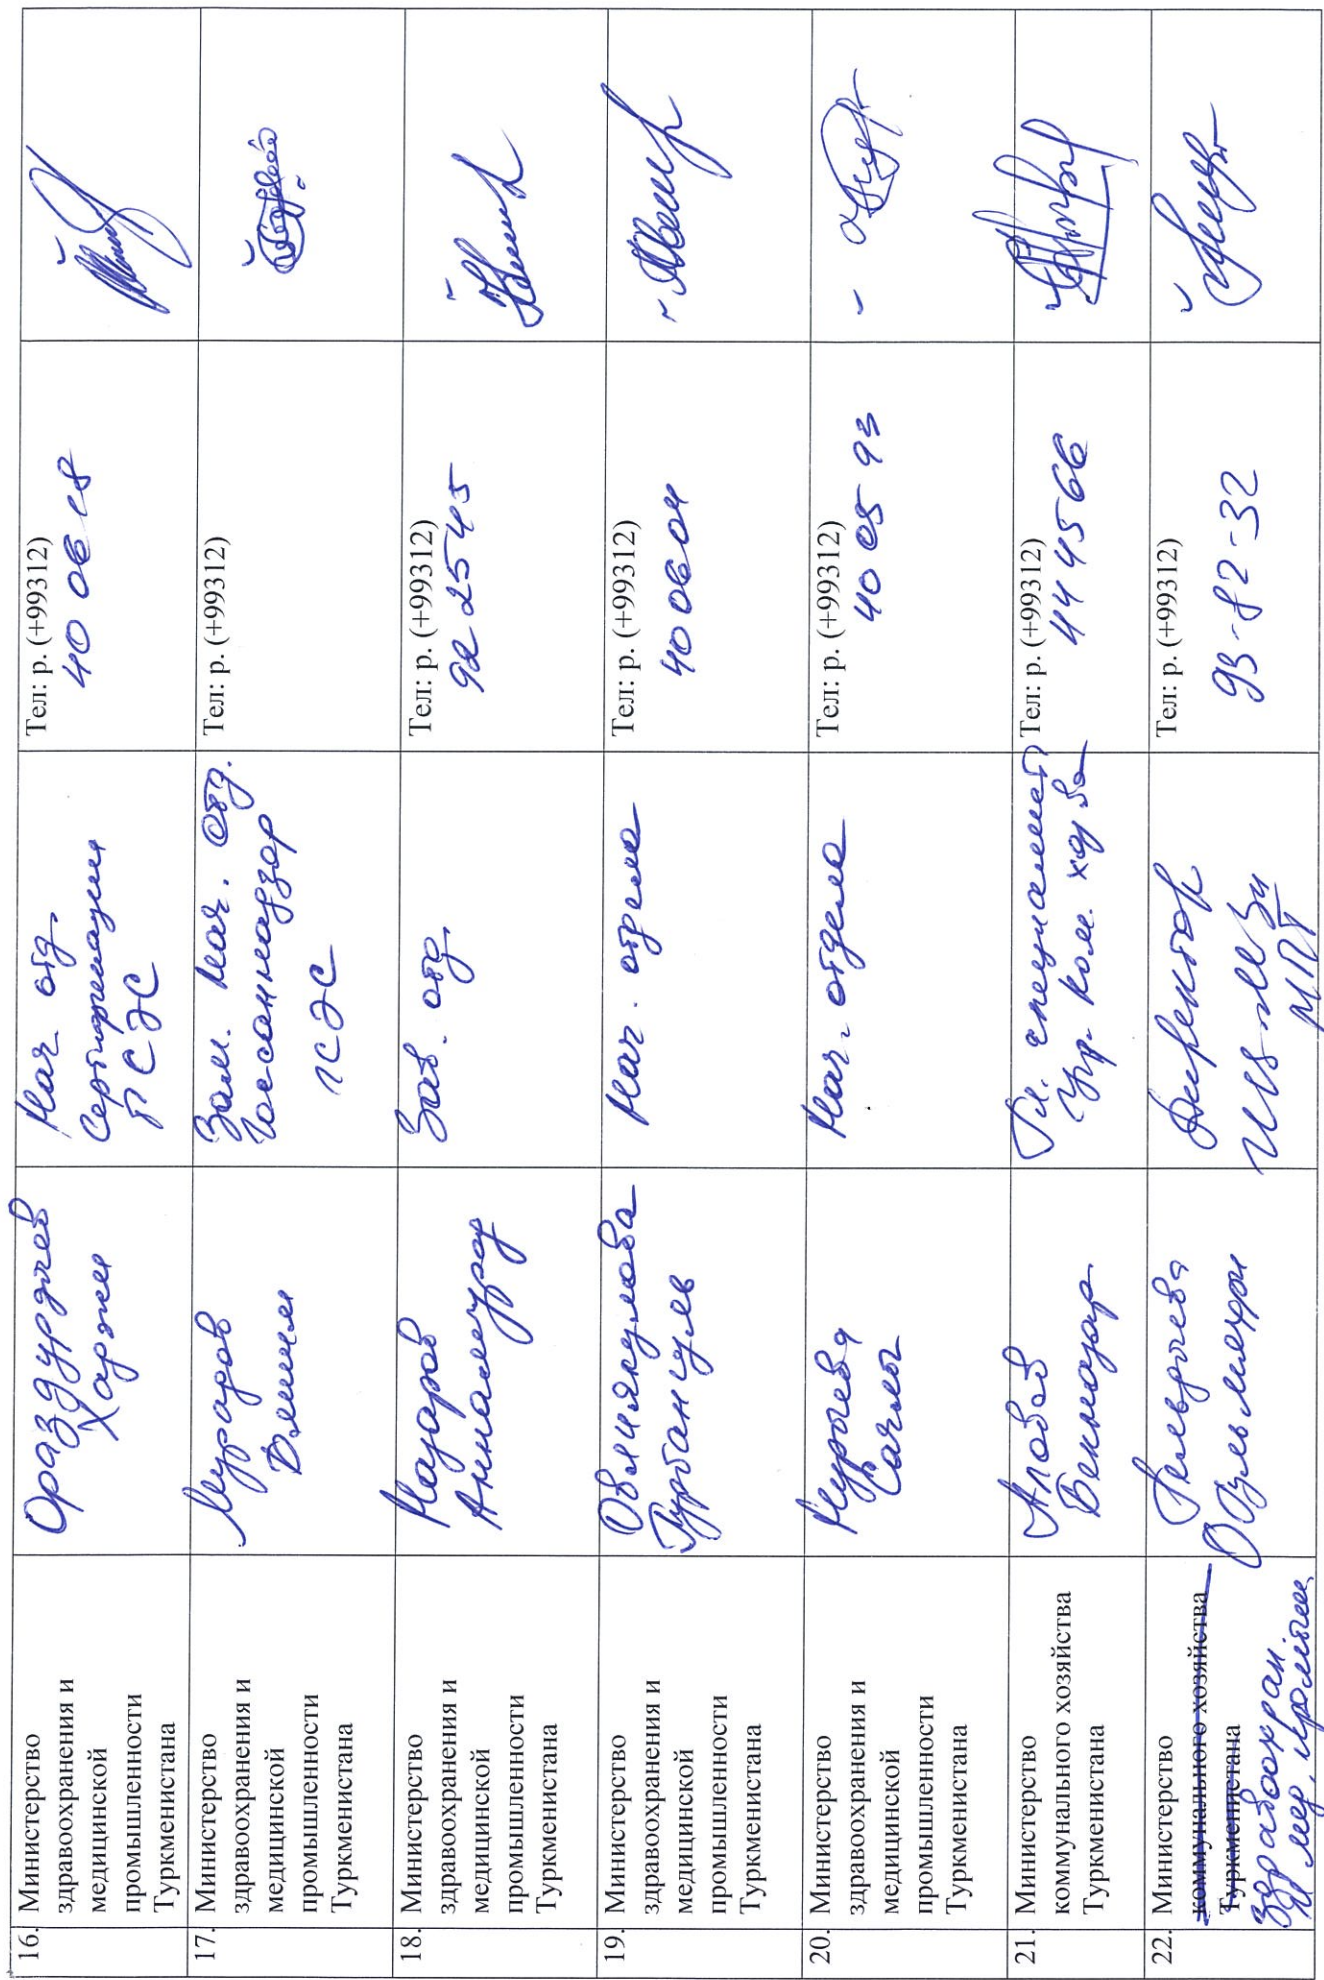 16.
Министерство
здравоохранения и
медицинской
промышленности
Туркменистана
Ораздурдыев
Хаджи
Нач. отд.
Сертификации
ГСЭС
Тел: р. (+99312)
40 06 18
17.
Министерство
здравоохранения и
медицинской
промышленности
Туркменистана
Мурадов
Зам. Нач. отд.
Госсаннадзор
ГСЭС
Тел: р. (+99312)
18.
Министерство
здравоохранения и
медицинской
промышленности
Туркменистана
Назаров
Аннамурад
Зав. отд.
Тел: р. (+99312)
92 25 45
19.
Министерство
здравоохранения и
медицинской
промышленности
Туркменистана
Овлиякулова
Гурбангуль
Нач. отдела
Тел: р. (+99312)
40 06 04
20.
Министерство
здравоохранения и
медицинской
промышленности
Туркменистана
Нурыева
Сачлы
Нач. отдела
Тел: р. (+99312)
40 05 93
21.
Министерство
коммунального хозяйства
Туркменистана
Бекназар
Гл. специалист
Упр. ком. хоз-ва
Тел: р. (+99312)
44 45 66
22.
Министерство
коммунального хозяйства
Туркменистана
здравоохран.
и мед. промышл.
Директор
МЗи
МП
Тел: р. (+99312)
93-82-32